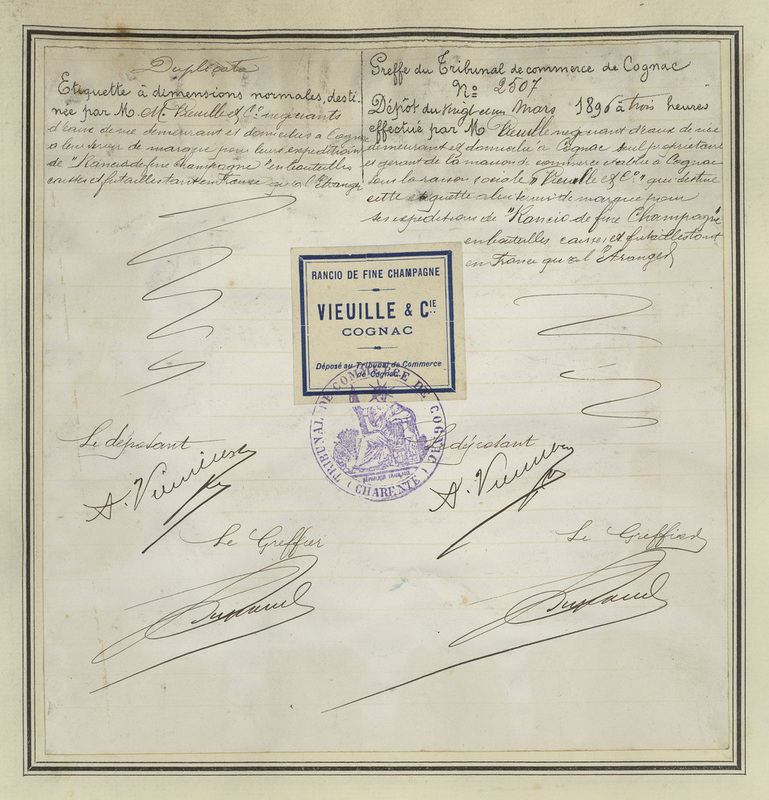 Duplicata
Etiquette à dimensions normales, desti-
née par M. M. Vieuille & Cie négociants
d'eaux de vie demeurant et domiciliés à Cognac
a leur servir de marque pour leurs expéditions
de "Rancio de fine champagne" en bouteilles
caisses et futailles tant en France qu'à l'Etranger
Greffe du Tribunal de commerce de Cognac
No 2507
Dépôt du Vingt et un Mars 1896 à trois heures
effectué par M Vieuille négociant d'eaux de vie
demeurant et domicilié à Cognac seul propriétaire
et gérant de la maison de commerce établie à Cognac
sous la raison sociale "Vieuille & Cie" qui destine
cette étiquette à lui servir de marque pour
ses expéditions de "Rancio de fine Champagne"
en bouteilles caisses et futailles tant
en France qu'à l'Etranger
RANCIO DE FINE CHAMPAGNE
VIEUILLE & CIE
COGNAC
Déposé au Tribunal de Commerce
de Cognac
TRIBUNAL DE COMMERCE DE COGNAC
RÉPUBLIQUE FRANÇAISE
(CHARENTE)
Le déposant
Le déposant
A. Vieuille
A. Vieuille
Le Greffier
Le Greffier